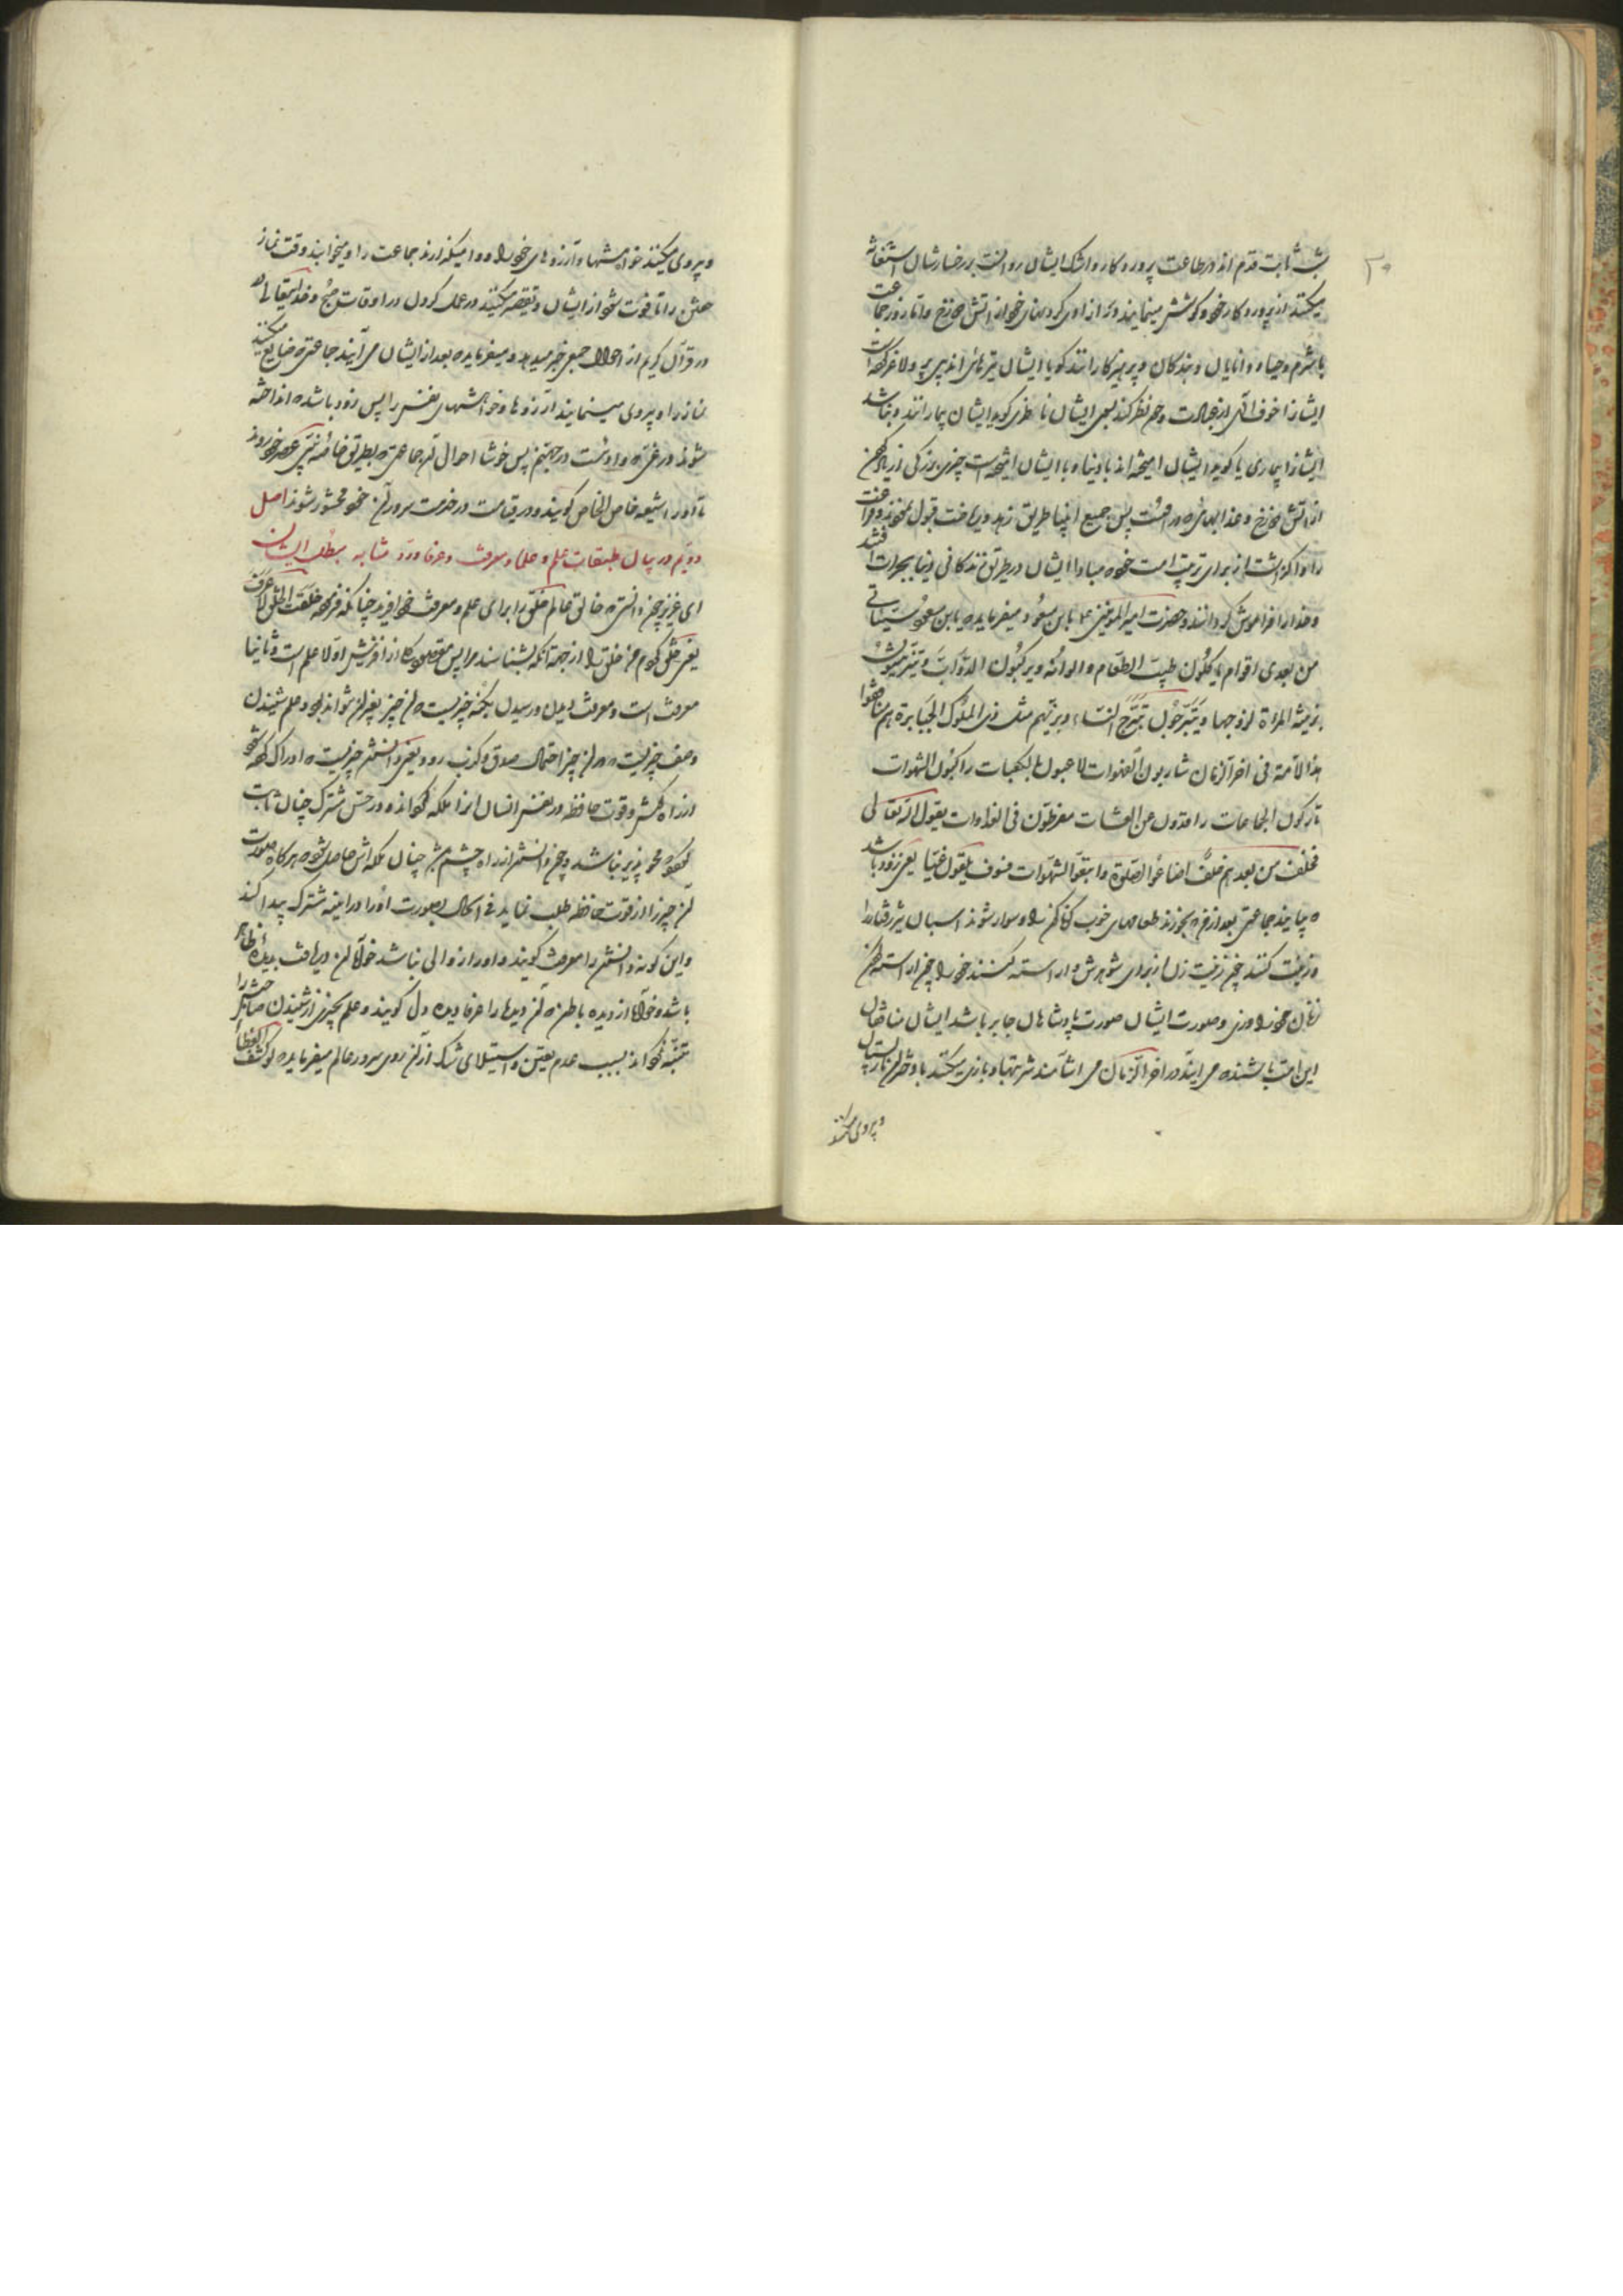 ۳۰
شب ثابت قدم اند در طاعت پروردکار و اشک ایشان روانست بر رخسارشان استغاثه
میکنند از پروردکار خود و کوشش مینمایند در از اوی کردنهای خود از اتش دوزخ و اما روز جماعت
با شرم و حیا و دانایان و بندکان و پرهیزکارانند کویا ایشان تیرهای اند بی پر و لاغر کرده است
ایشانرا خوف الهی از عبادت و چون نظر کند بسوی ایشان ناظری کوید ایشان بیمارانند و نباشد
ایشانرا بیماری یا کوید ایشان امیخته اند با دنیا و با ایشان امیخته است چیزی بزرکی از یاد کردن
از اتش دوزخ و عذابهای که در اوست پس جمیع انبیا طریق زهد و ریاضت قبول نمودند و فراغت
را واکذاشتند از برای تربیت امت خود که مبادا ایشان در طریق زندکانی دنیا بجرات افتند
و خدا را فراموش کردانند و حضرت امیرالمومنین ع بابن مسعود میفرماید که یابن مسعود سیاتی
من بعدی اقوام یاکلون طیب الطعام و الوانه ویرکبون الدواب و یتزینون
بزینة المراة لزوجها و یتبرجون تبرج النساء و زیهم مثل زی الملوک الجبابرة هم منافقوا
هذه الامة فی اخر الزمان شاربون القهوات لاعبون بالکعبات راکبون الشهوات
تارکون الجماعات راقدون عن العتمات مفرطون فی الغداوات یقول الله تعالی
فخلف من بعدهم خلف اضاعوا الصلوة و اتبعوا الشهوات فسوف یلقون غیا یعنی زود باشد
که بیایند جماعتی بعد از من که بخورند طعامهای خوب کوناکون را و سوار شوند اسبان تیزرفتار را
و زینت کنند چون زینت زن از برای شوهرش و اراسته کنند خود را چون اراسته کردن
زنان خود را و زی و صورت ایشان صورت پادشاهان جابر باشد ایشان منافقان
این امت باشند که می ایند در اخر الزمان می اشامند شربتها و بازی میکنند
و پیروی میکنند
و پیروی میکنند خواهشها و آرزوهای خود را و وامیکذارند جماعت را و میخوابند وقت نماز
خفتن را تا فوت شود از ایشان و تقصیر میکنند در عمل کردن در اوقات صبح و خدایتعالی که
در قرآن کریم از احوال جمعی خبر میدهد و میفرماید که بعد از ایشان می آیند جماعتی که ضایع میکنند
نماز را و پیروی مینمایند آرزوها و خواهشهای نفس را پس زود باشد که انداخته
شوند در غی که وادیست در جهنم پس خوشا احوال آن جماعتی که بطریق خاصه نبی عمر خود روز
تا او را شیعه خاص الخاص کویند و در قیامت در خدمت سرور آن خود محشور شوند اصل
دویم در بیان طبقات علم و علما و معرفت و عرفا و رد مشابه بمطلب ایشان
ای عزیز چون دانستی که خالق عالم خلق را برای علم و معرفت خود افرید چنانکه فرموده خلقت الخلق لاعرف
یعنی خلق کردم من خلق را از جهة آنکه بشناسند مرا پس مقصود کار از افرینش اولا علم است و ثانیا
معرفت است و معرفت دیدن و رسیدن بکنه چیزیست که آن چیز بغیر آن نتواند بود و علم شنیدن
وصف چیزیست که در آن چیز احتمال صدق و کذب رود و یعنی دانستن چیزیست که ادراک کرده شود
از راه کوش و قوت حافظه در نفس انسان انرا ملکه نکرداند و در حس مشترک چنان ثابت
نکردد که محو پذیر نباشد و چون دانستن از راه چشم سر چنان ملکه اش حاصل شود که هرکاه صورت
آن چیز را از قوت حافظه طلب نماید فی الحال بصورت او را در آینه مشترک پیدا کند
و این کونه دانستن را معرفت کویند و او را زوالی نباشد خواه آن دریافت بدیده ظاهر
باشد و خواه از دیده باطن که آن دیدها را عرفا دیده دل کویند و علم بچیزی از شنیدن صاحبش را
متنبه نکرداند بسبب عدم یقین و استیلای شک از آن روی سرور عالم میفرماید که لو کشف الغطا